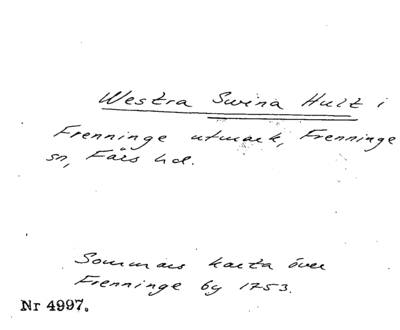 Westra Swina Hult i
Frenninge utmark, Frenninge
sn, Färs hd.
Sommars karta över
Frenninge by 1753.
Nr 4997.